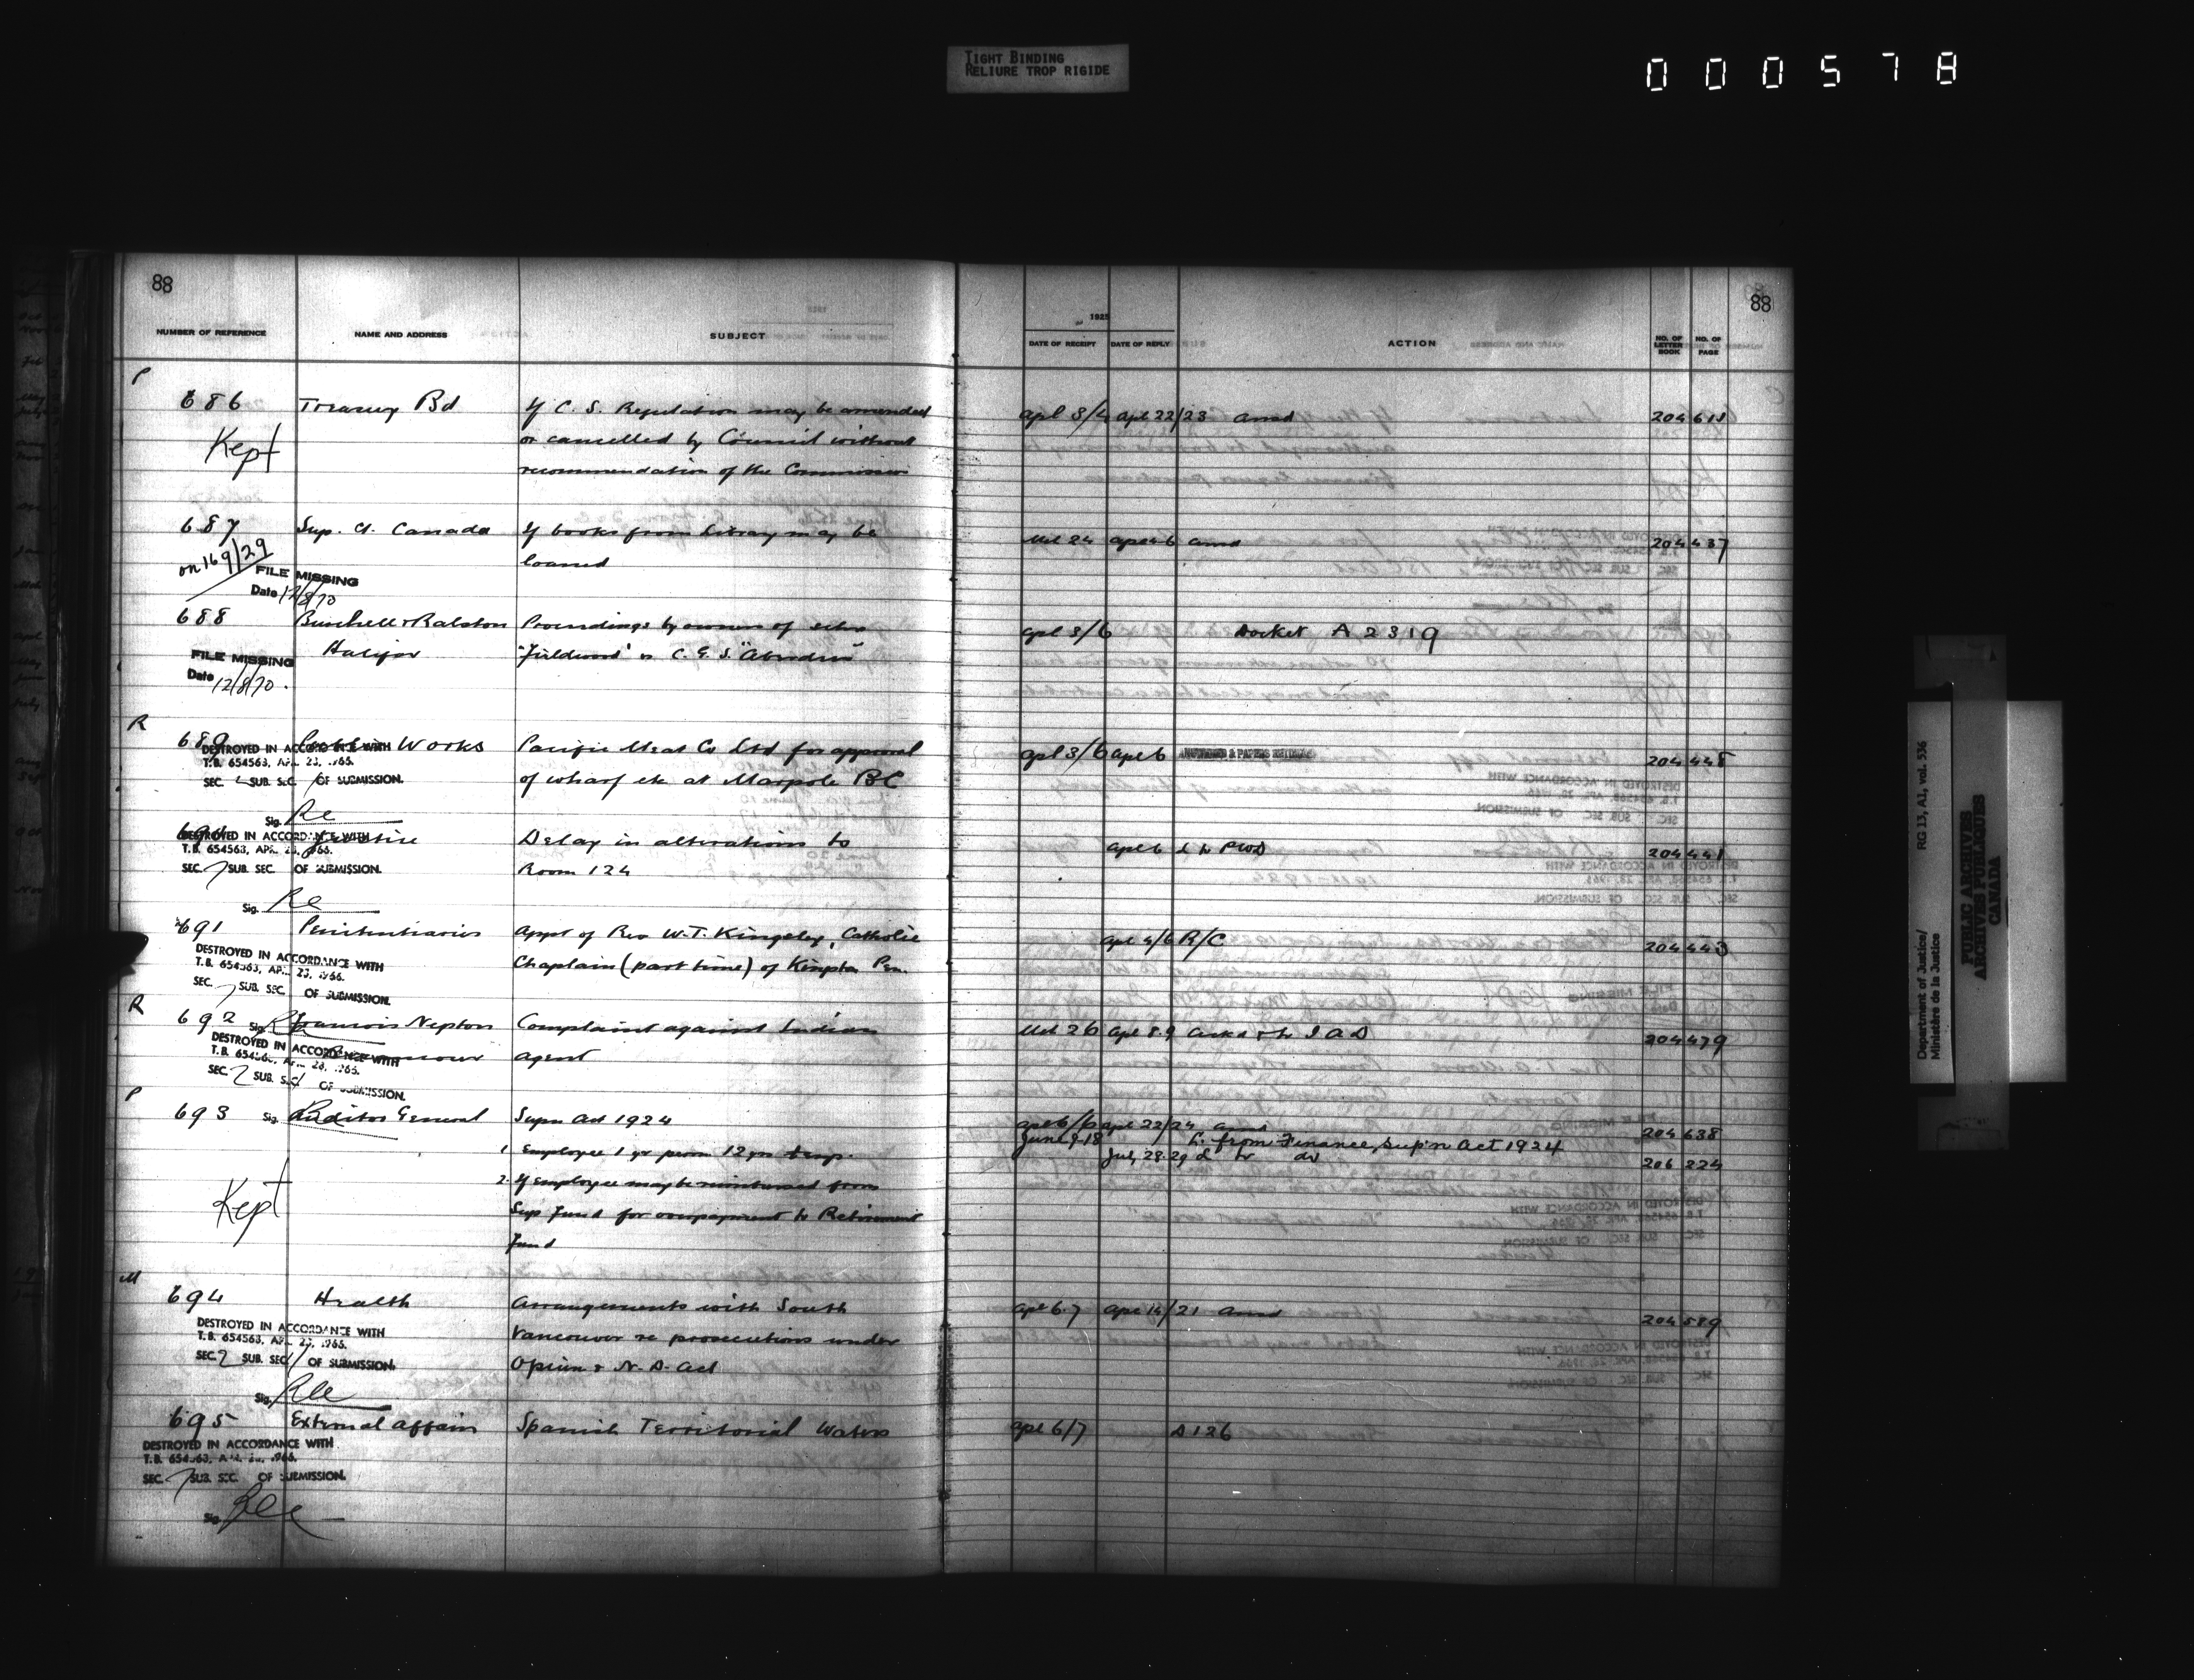 TIGHT BINDING
RELIURE TROP RIGIDE
000578
88
88
NUMBER OF REFERENCE NAME AND ADDRESS SUBJECT
1925
DATE OF RECEIPT DATE OF REPLY ACTION NO. OF LETTER BOOK NO. OF PAGE
P
686 Treasury Bd If C. S. Regulation may be amended apl 3/4 apl 22/23 ansd 204
Kept or cancelled by Council without
recommendation of the Commission
687 Sup. Ct. Canada If books from Library may be Mch 24 ansd 204 437
on 169/29 loaned
FILE MISSING
Date 12/8/70
688 Burchell & Ralston Proceedings by owners of schr apl 3/6 Docket A 2319
Halifax
FILE MISSING
Date 12/8/70.
R
689 Public Works Pacific Meat Co Ltd for approval apl 3/6 apl 6 204 448
DESTROYED IN ACCORDANCE WITH
T.B. 654563, APR. 23, 1966. of wharf etc at Marpole BC
SEC. SUB. SEC. OF SUBMISSION.
Sig.
690 Justice Delay in alterations to apl 6 L to PWD 204 441
DESTROYED IN ACCORDANCE WITH
T.B. 654563, APR. 23, 1966. Room 124
SEC. 7 SUB. SEC. OF SUBMISSION.
Sig.
691 Penitentiaries Appt of Rev W. T. Kingsley, Catholic apl 4/6 R/C 204 443
DESTROYED IN ACCORDANCE WITH
T.B. 654563, APR. 23, 1966. Chaplain (part time) of Kingston Pen.
SEC. 7 SUB. SEC. OF SUBMISSION.
R
692 Sig. Francois Nepton Complaint against Indian Mch 26 apl 8.9 ackd & to I A D 204 479
DESTROYED IN ACCORDANCE WITH
T.B. 654563, APR. 23, 1966. agent
SEC. 2 SUB. SEC. 1 OF SUBMISSION.
P
693 Sig. Auditor General Supn Act 1924 apl 6/6 apl 22/24 ansd 204 638
June 9-18 L. from Finance, Sup'n Act 1924
1. Employee 1 yr perm 12 yrs temp. July 28.29 L to do 206 224
2. If employee may be reimbursed from
Kept Sup Fund for overpayment to Retirement
Fund
M
694 Health Arrangements with South apl 6.7 apl 14/21 ansd 204 589
DESTROYED IN ACCORDANCE WITH
T.B. 654563, APR. 23, 1966. Vancouver re prosecutions under
SEC. 2 SUB. SEC. 1 OF SUBMISSION. Opium & N. D. Act
Sig.
695 External Affairs Spanish Territorial Waters apl 6/7 D 126
DESTROYED IN ACCORDANCE WITH
T.B. 654563, APR. 23, 1966.
SEC. 7 SUB. SEC. OF SUBMISSION.
Sig.
Department of Justice/ RG 13, A1, vol. 536
Ministère de la Justice
PUBLIC ARCHIVES
ARCHIVES PUBLIQUES
CANADA